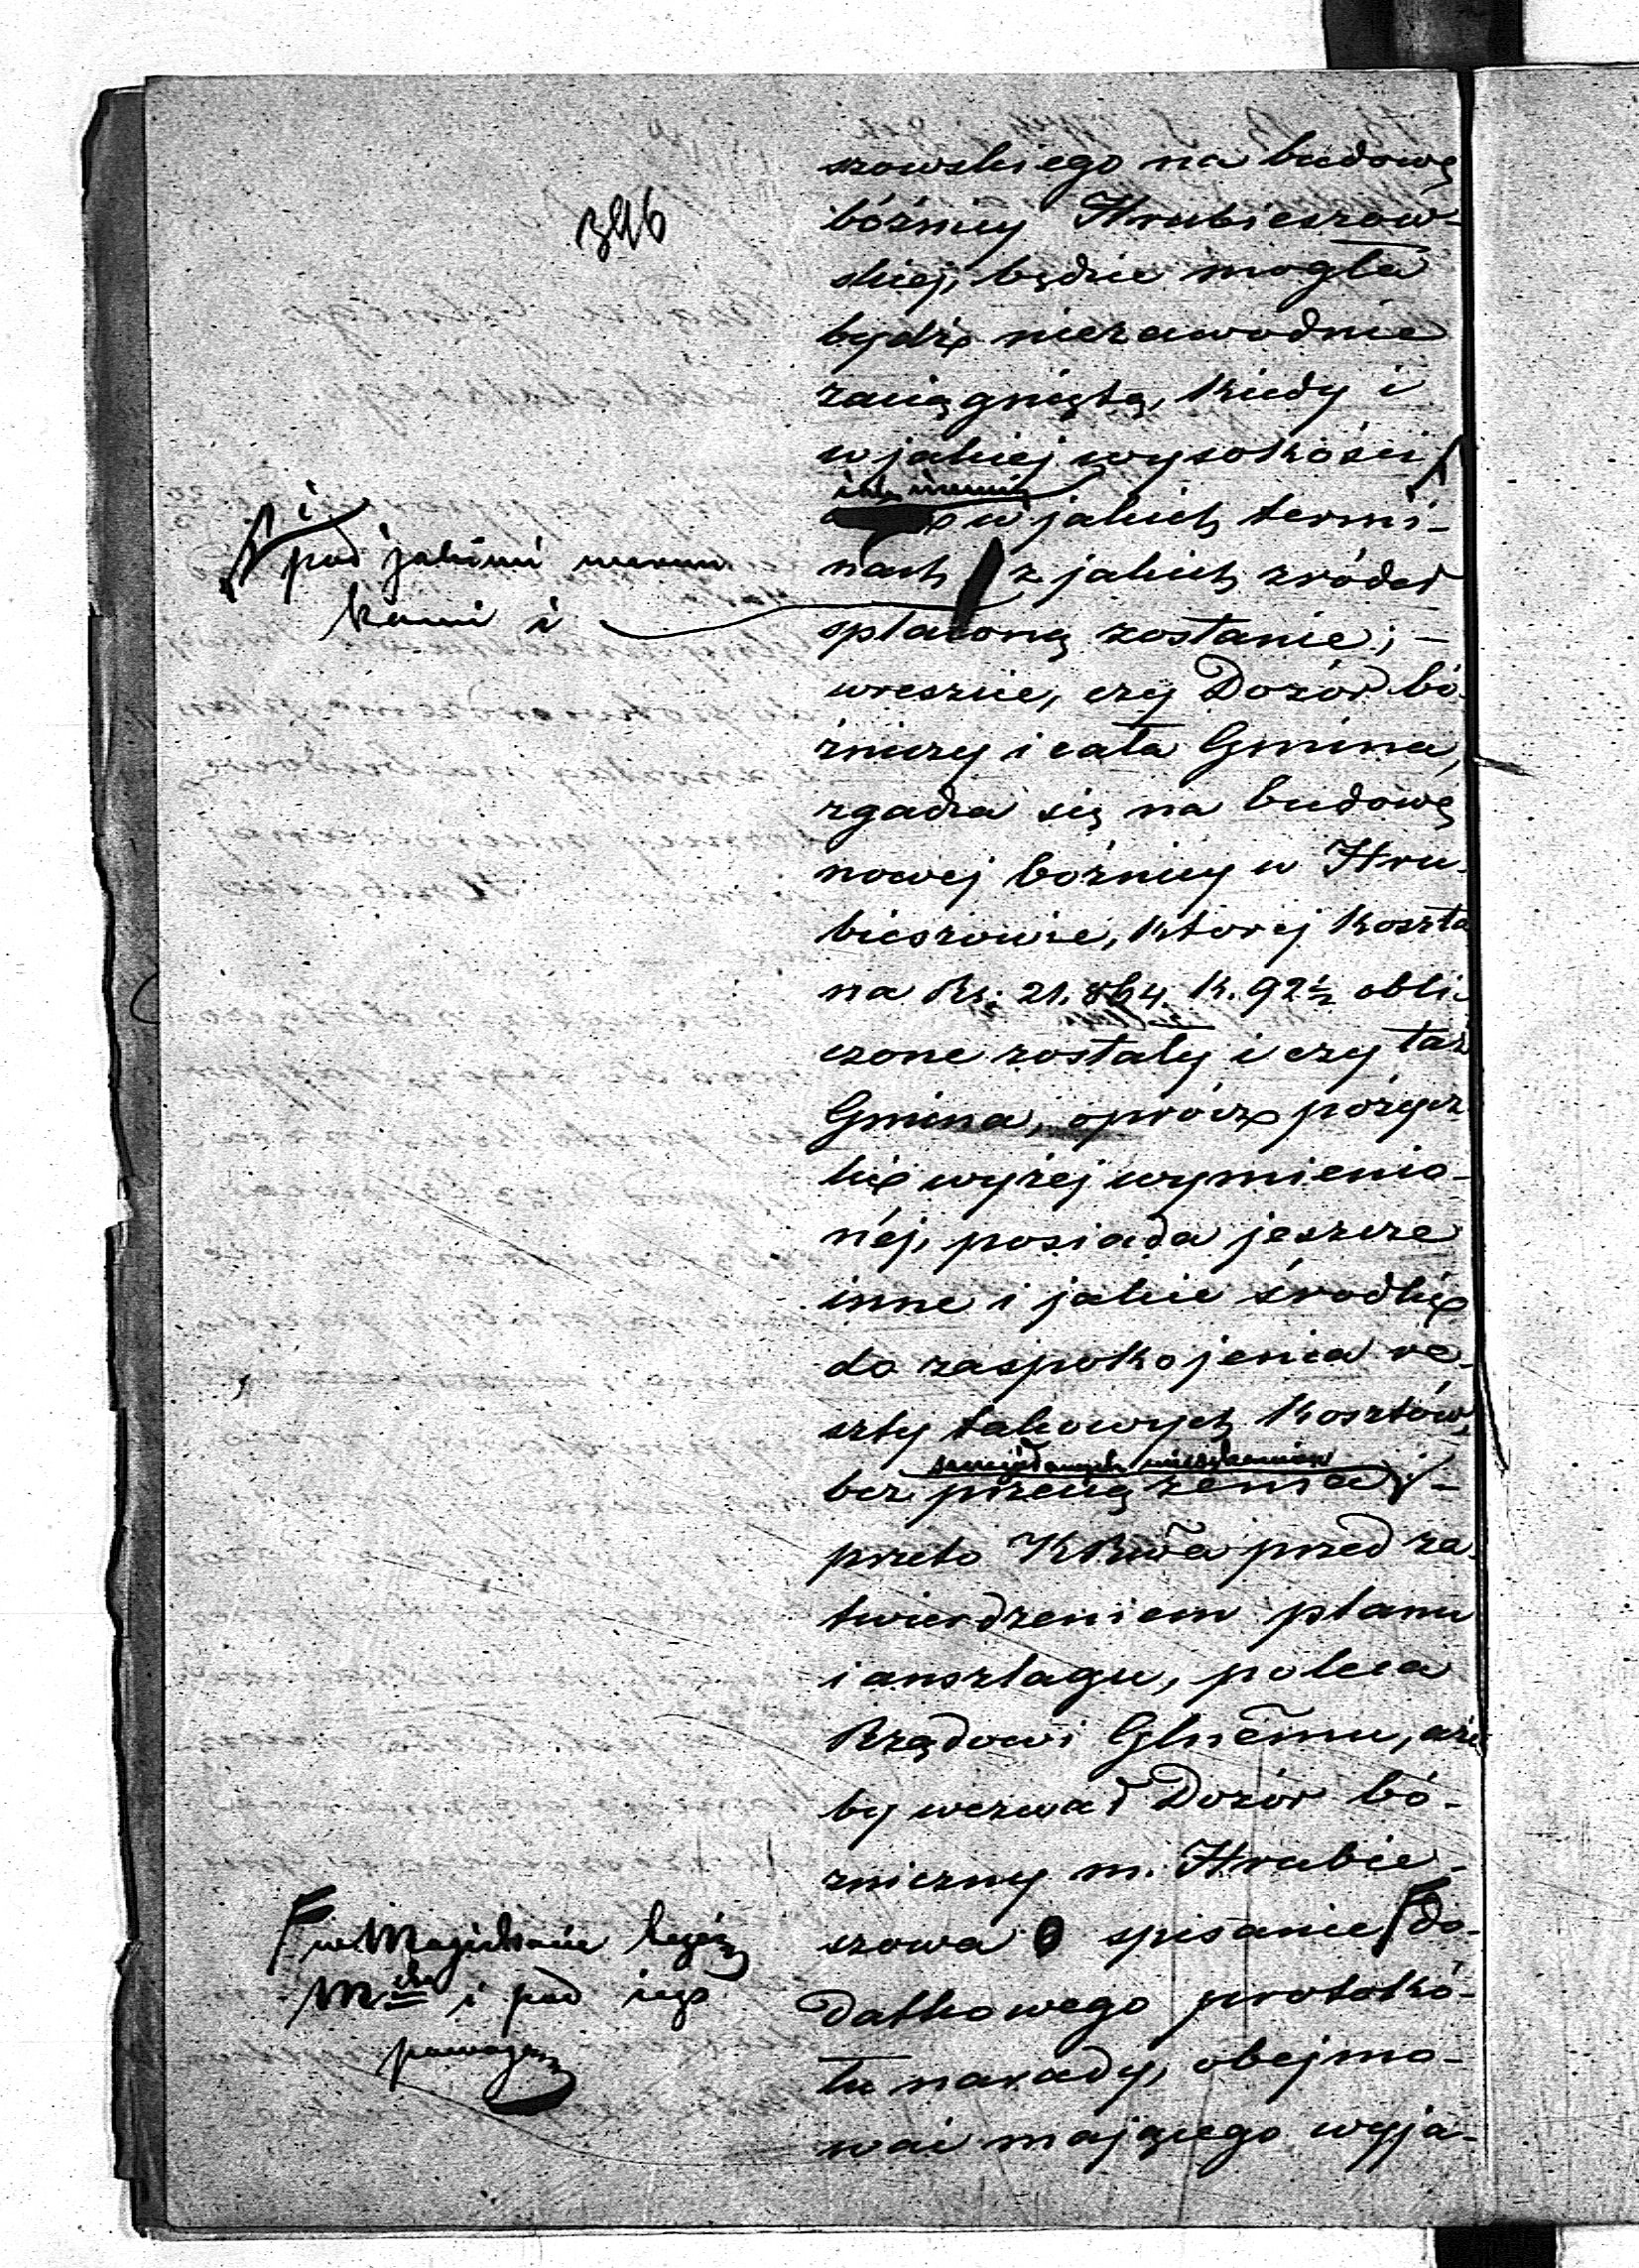 396
szowskiego na budowę
bóżnicy Hrubieszow-
skiej, będzie mogła
bydź niezawodnie
zaciągniętą, kiedy i
w jakiej wysokości
w jakich termi-
nach z jakich źródeł
spłaconą zostanie; –
wreszcie, czy Dozór bó-
żniczy i cała Gmina,
zgadza się na budowę
nowej bóżnicy w Hru-
bieszowie, której koszta
na Rs. 21.864 k. 92½ obli-
czone zostały i czy taż
Gmina, oprócz pożycz-
ki wyżej wymienio-
néj, posiada jeszcze
inne i jakie środki
do zaspokojenia re-
szty takowych kosztów,
bez przeciążenia; –
przeto KRwa przed za-
twierdzeniem planu
i anszlagu, poleca
Rządowi Glnemu, aże-
by wezwał Dozór bó-
żniczny m. Hrubie-
szowa o spisanie do-
datkowego protokó-
łu narady, obejmo-
wać mającego wyja-
i
pod jakiemi warun
kami i
w Magistracie tegoż
Mta i pod jego
powagą